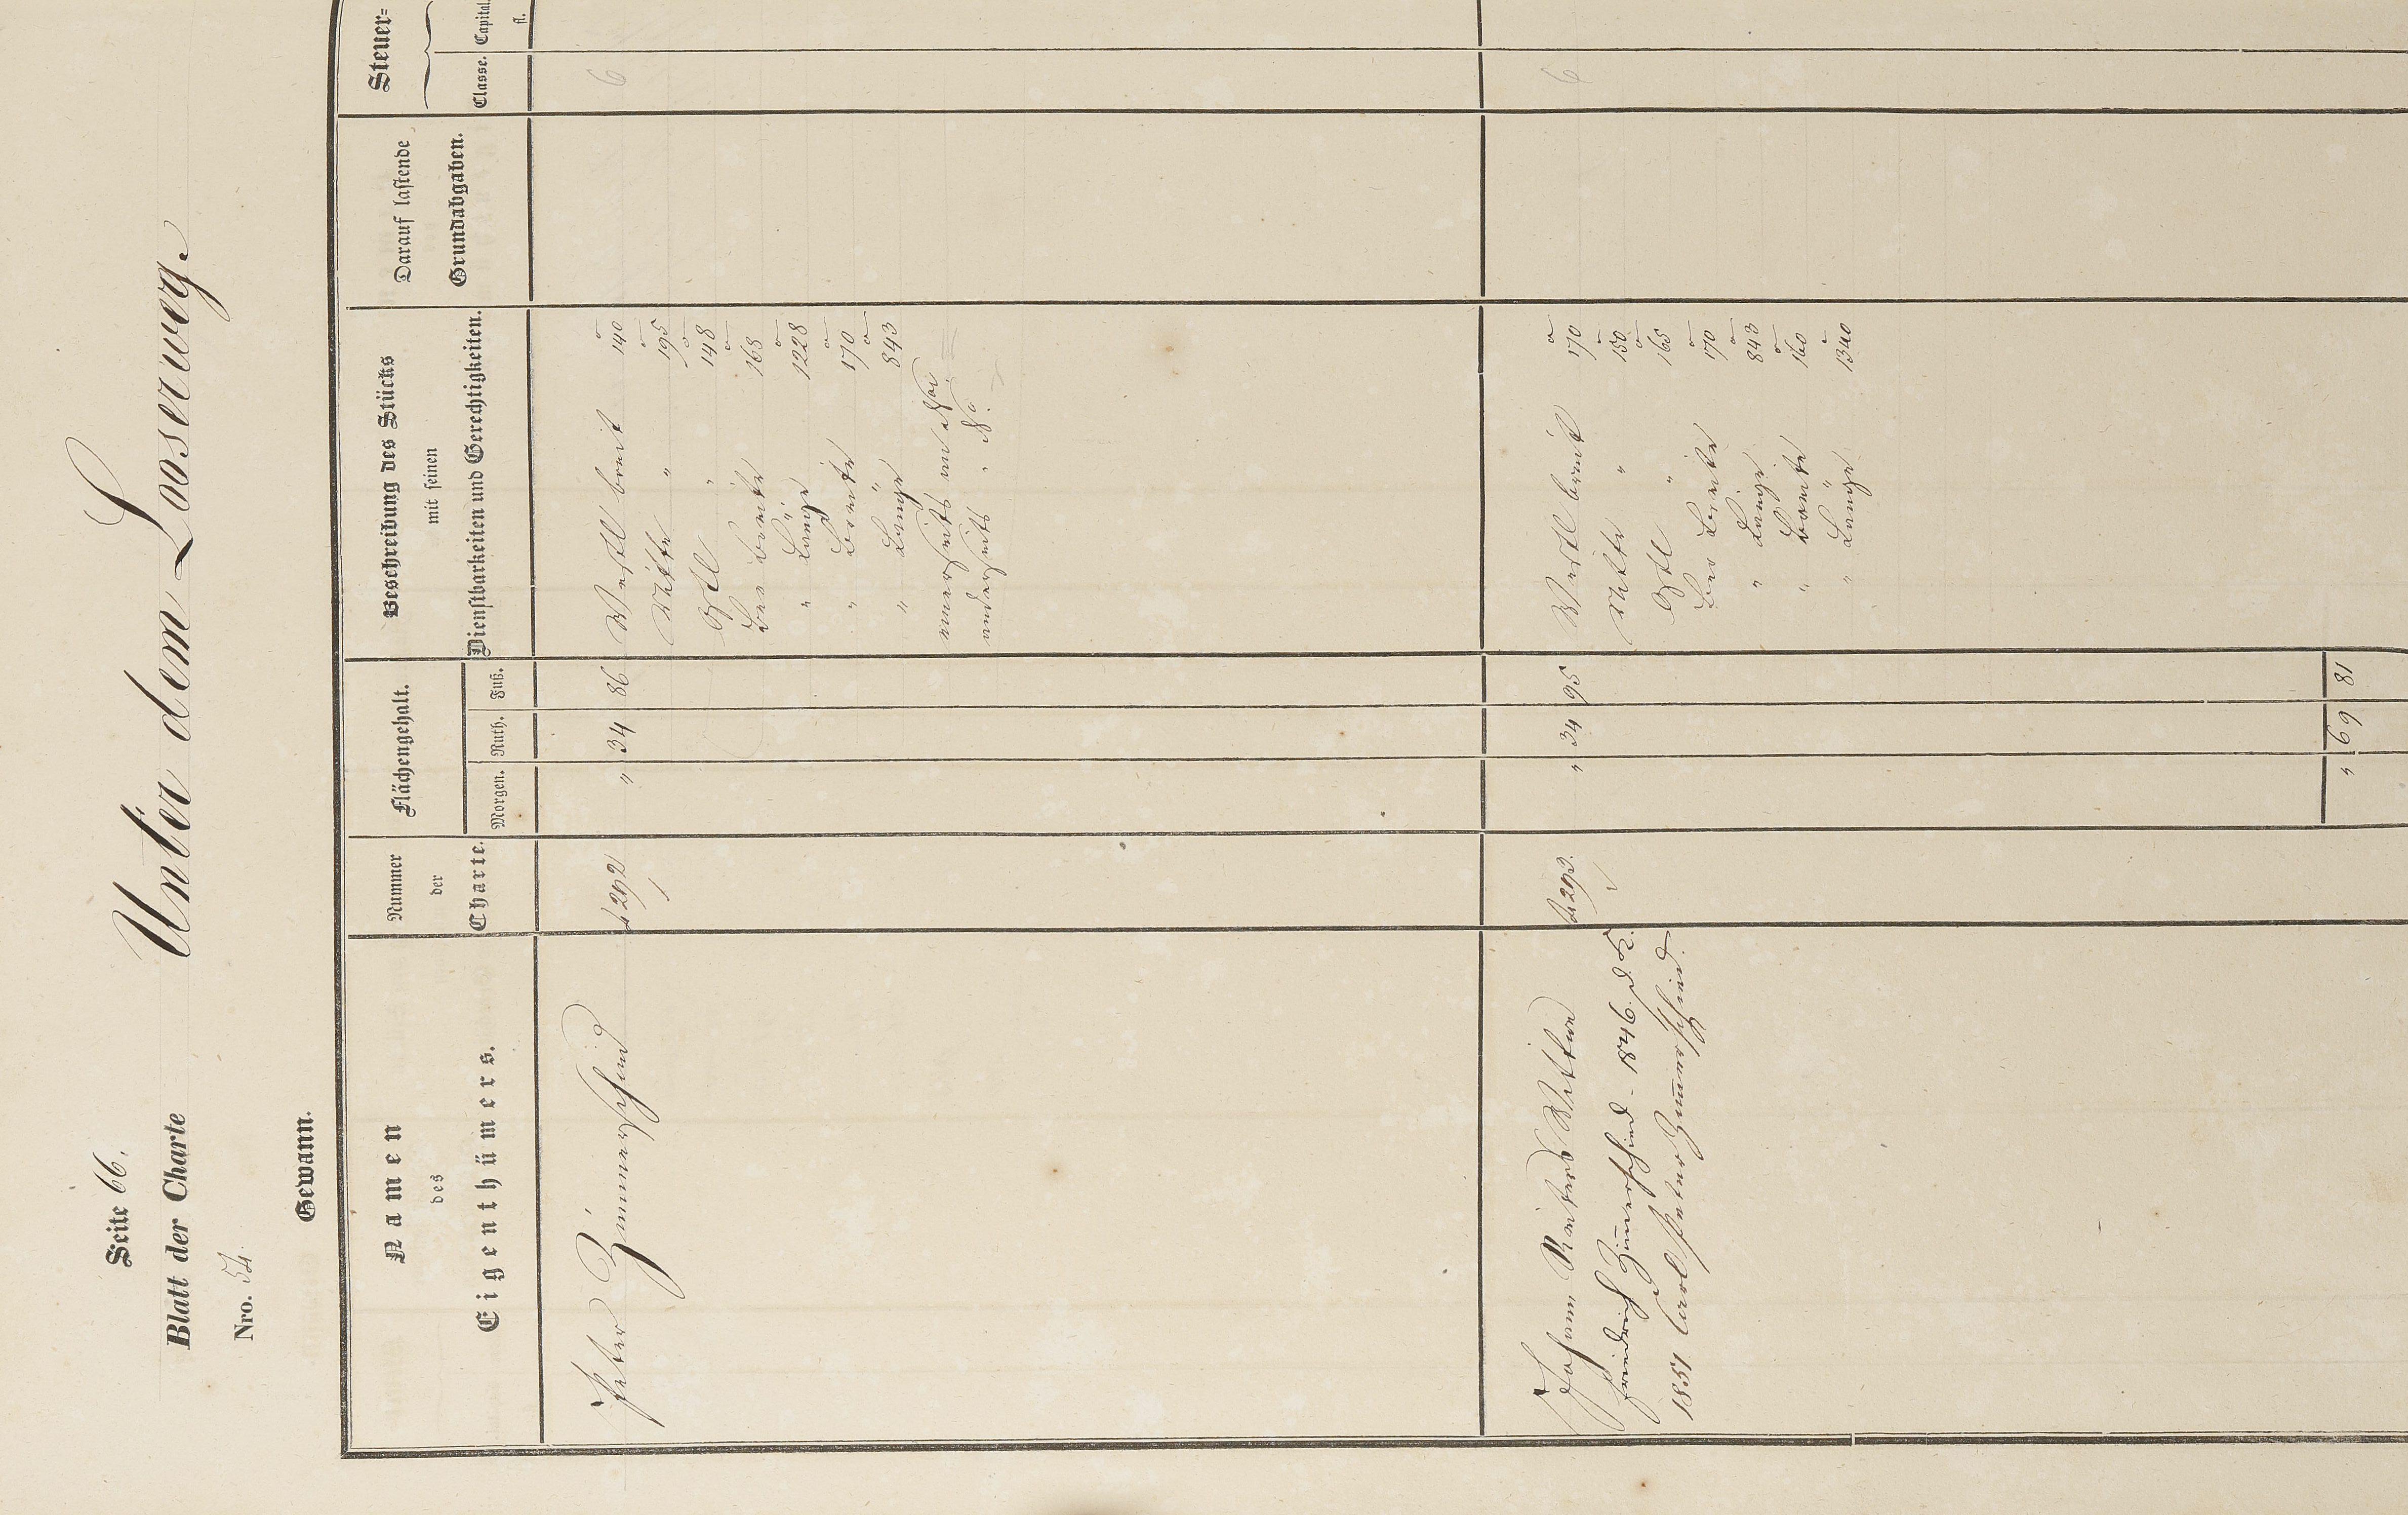 Seite 66.
Blatt der Charte
Nro. 54.
Unter dem Looserweg.
Gewann.
Namen
des
Eigenthümers.
Nummer
der
Charte.
Flächengehalt.
Morgen. Ruth. Fuß.
Beschreibung des Stücks
mit seinen
Dienstbarkeiten und Gerechtigkeiten.
Darauf lastende
Grundabgaben.
Steuer=
Classe. Capital.
fl.
Peter Zimmerschied
4292
" 34 86
Westl breit 140
Mitte " 195
Ostl " 148
Breite 168
" Länge 1228
" Breite 170
" Länge 843
einerseits
anderseits
6
Johann Wittwe
Friedrich Zimerschied - 1846.
1851 Carl Peter Zimerschied.
4293.
" 34 95
Westl breit 170
Mitte " 150
Ostl " 165
Breite 170
" Länge 843
" Breite 160
" Länge 1340
6
" 69 81